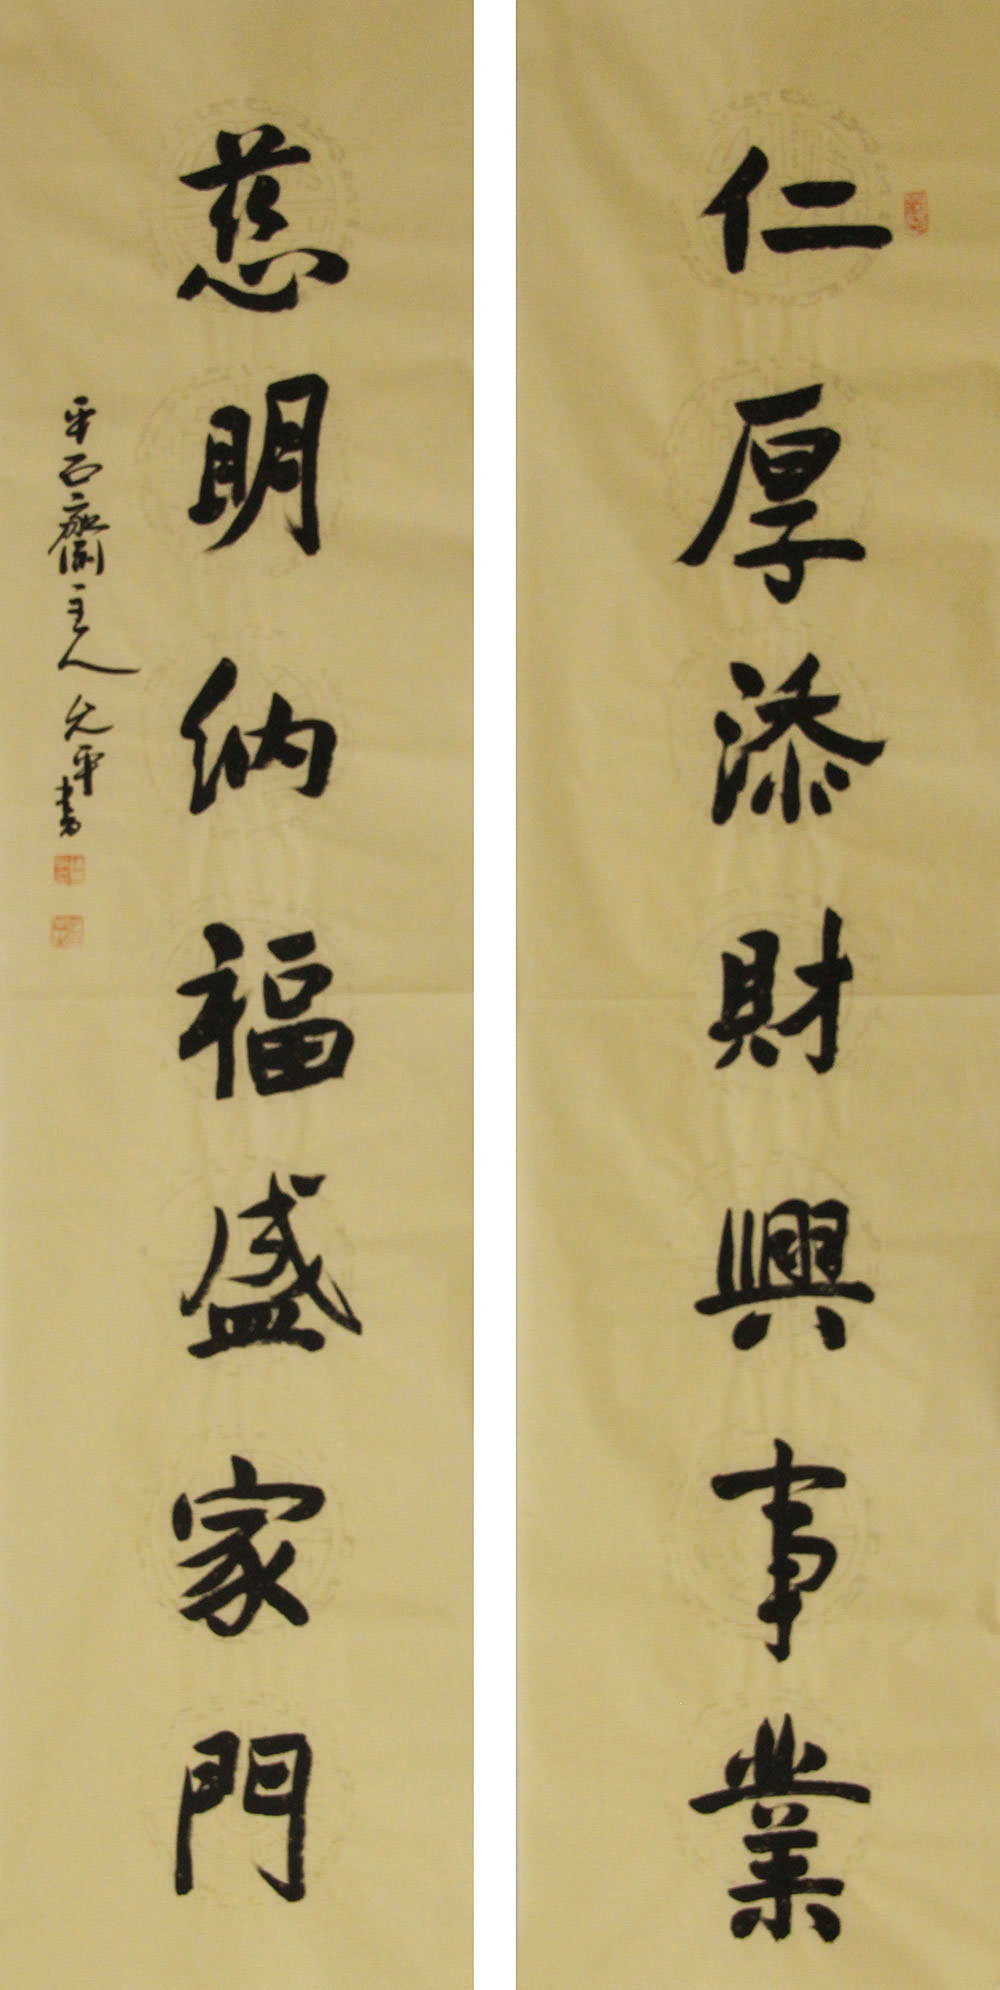 仁厚添財興事業
慈明納福盛家門
平石齋主人允平書